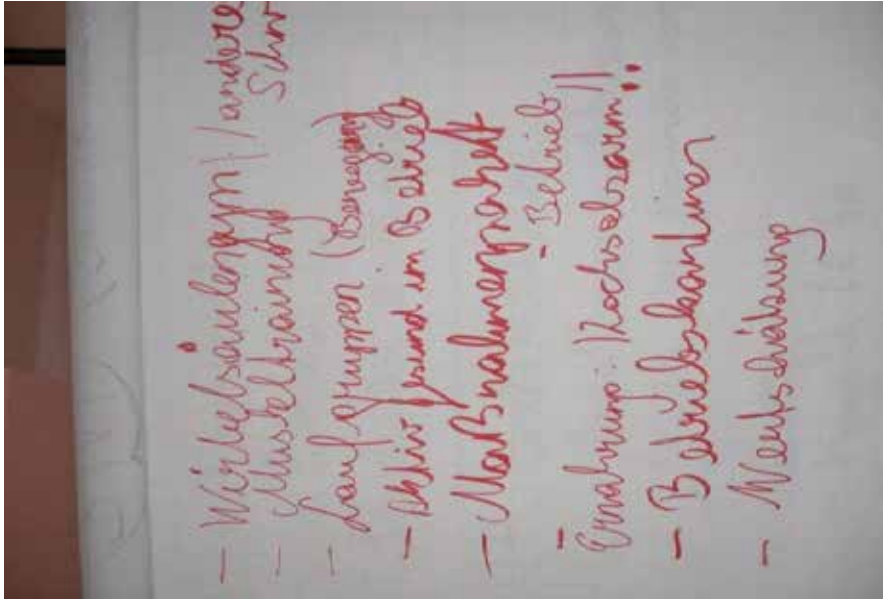 - Wirbelsäulengym / andere
- Muskeltraining
- Laufgruppen (Bewegung)
- Aktiv gesund im Betrieb
- Maßnahmenpaket
- Betrieb
- Ernährung: Kochsalzarm!!
- Betriebskantinen
- Wertschätzung